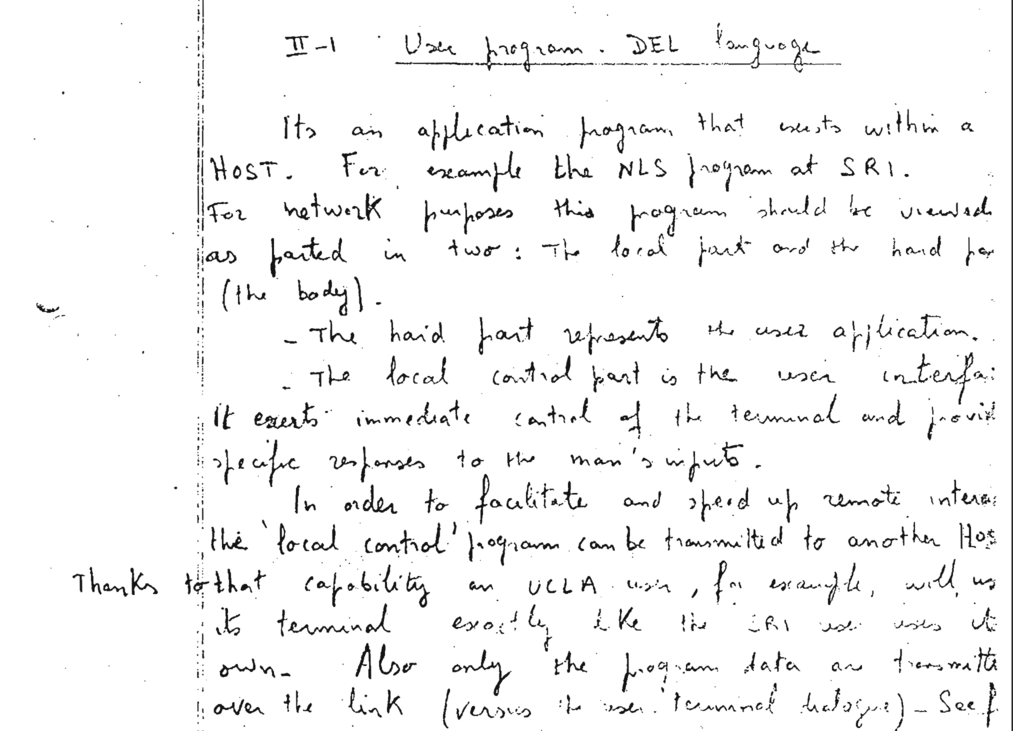 II-1 User program. DEL language
Its an application program that exists within a
HOST. For example the NLS program at SRI.
For network purposes this program should be viewed
as parted in two: The local part and the hard pa
(the body).
- The hard part represents the user application.
- The local control part is the user interfa
It exerts immediate control of the terminal and provid
specific responses to the man's inputs.
In order to facilitate and speed up remote intera
the 'local control' program can be transmitted to another Hos
Thanks to that capability an UCLA user, for example, will us
its terminal exactly like the SRI user uses it
own- Also only the program data are transmitte
over the link (versus the user terminal dialogue) - See f